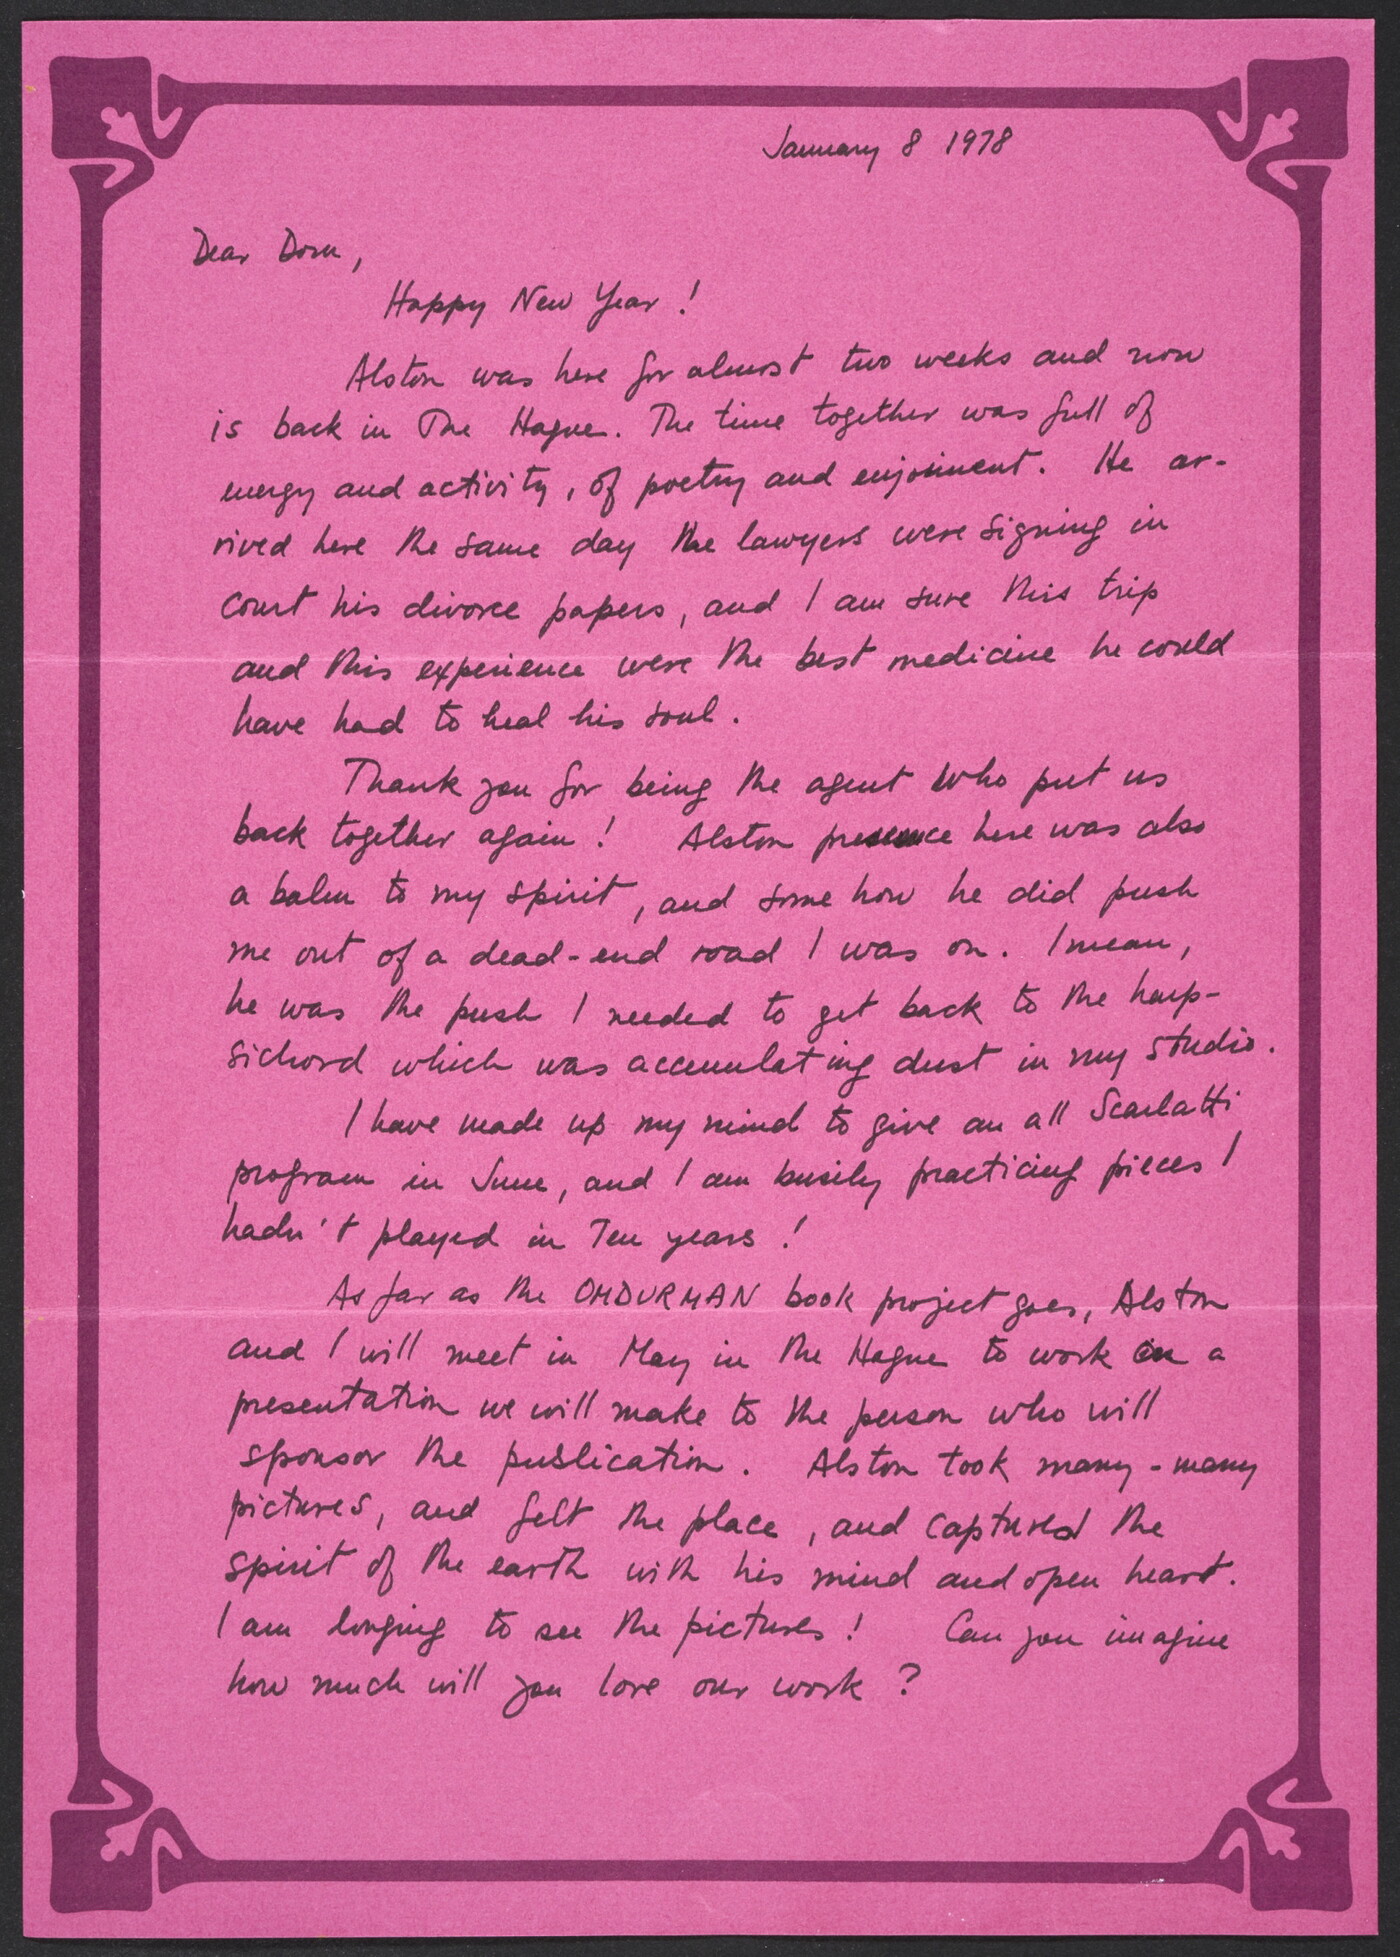 January 8 1978
Dear Dorn,
Happy New Year!
Alston was here for almost two weeks and now
is back in The Hague. The time together was full of
energy and activity, of poetry and enjoiment. He ar-
rived here the same day the lawyers were signing in
court his divorce papers, and I am sure this trip
and this experience were the best medicine he could
have had to heal his soul.
Thank you for being the agent who put us
back together again! Alston presence here was also
a balm to my spirit, and some how he did push
me out of a dead-end road I was on. I mean,
he was the push I needed to get back to the harp-
sichord which was accumulating dust in my studio.
I have made up my mind to give an all Scarlatti
program in June, and I am busily practicing pieces I
hadn't played in Ten years!
As far as the OMDURMAN book project goes, Alston
and I will meet in May in the Hague to work on a
presentation we will make to the person who will
sponsor the publication. Alston took many-many
pictures, and felt the place, and captured the
spirit of the earth with his mind and open heart.
I am longing to see the pictures! Can you imagine
how much will you love our work?